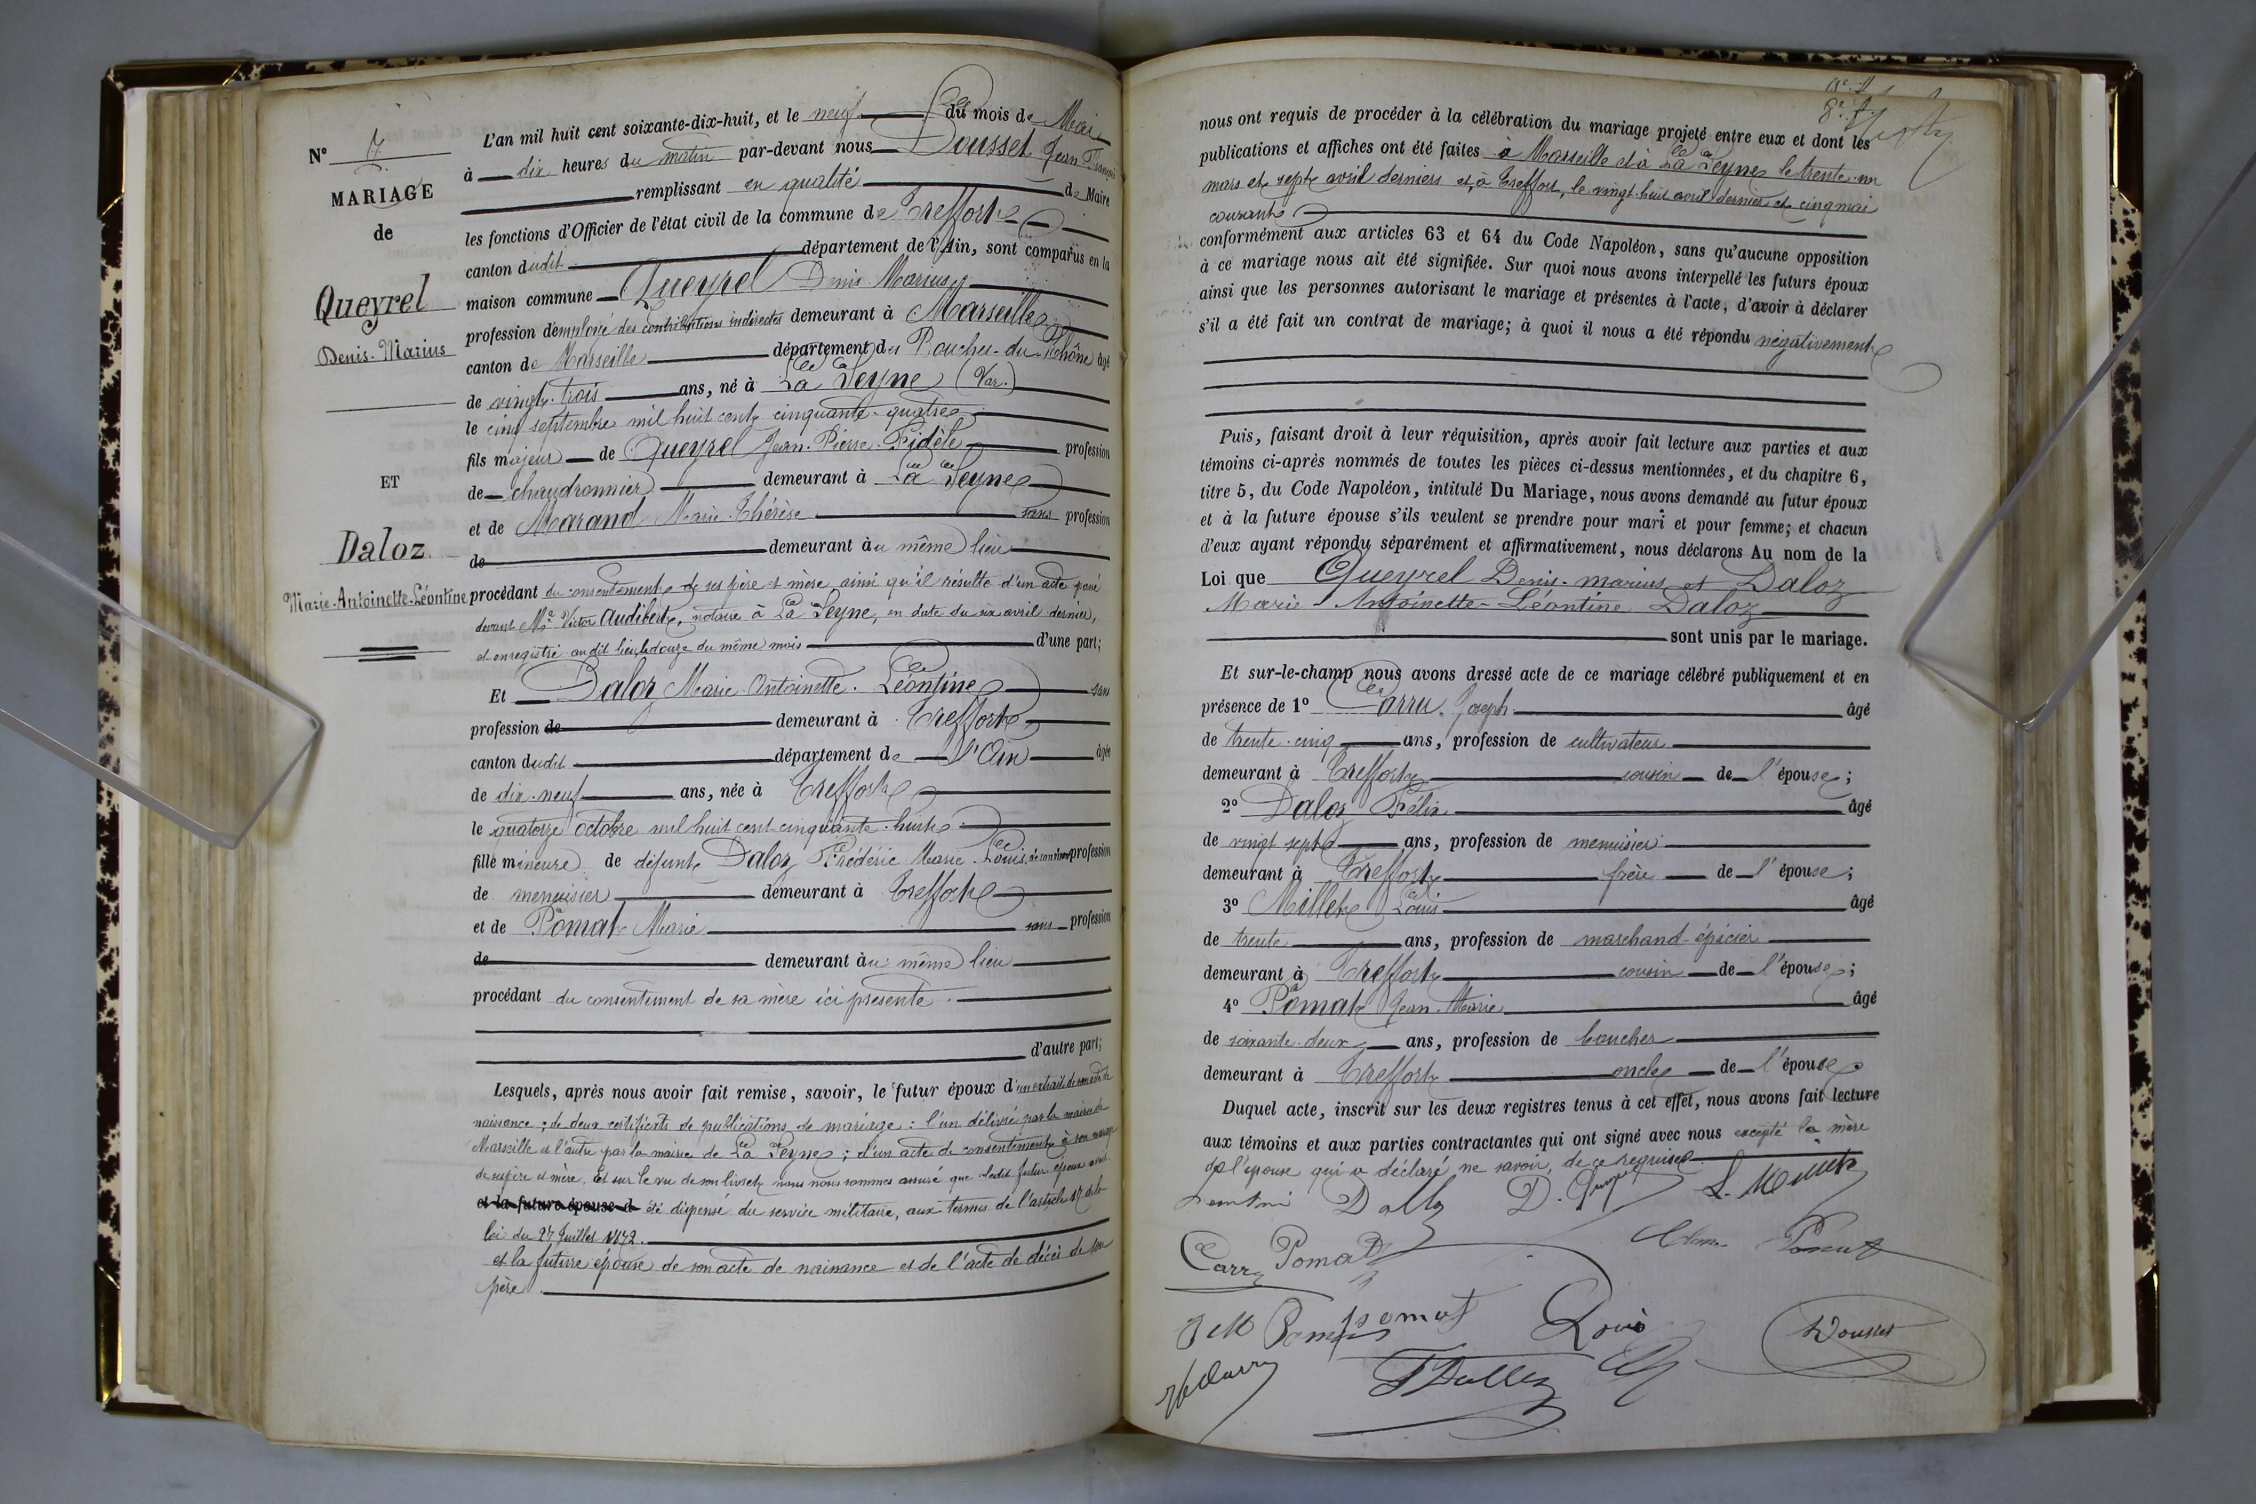 N° 7
MARIAGE
de
Queyrel
Denis-Marius
ET
Daloz
Marie-Antoinette-Léontine
L'an mil huit cent soixante-dix-huit, et le neuf du mois de Mai
à dix heures du matin par-devant nous Dousset Jean François
remplissant en qualité de Maire
les fonctions d'Officier de l'état civil de la commune de Treffort
canton dudit département de l'Ain, sont comparus en la
maison commune Queyrel Denis-Marius
profession d'employé des contributions indirectes demeurant à Marseille
canton de Marseille département des Bouches-du-Rhône âgé
de vingt-trois ans, né à La Seyne (Var.)
le cinq septembre mil huit cent cinquante-quatre
fils majeur de Queyrel Jean-Pierre-Fidèle profession
de chaudronnier demeurant à La Seyne
et de Marand Marie-Thérèse sans profession
de demeurant au même lieu
procédant du consentement de ses père et mère ainsi qu'il résulte d'un acte passé
devant Me Victor Audibert, notaire à La Seyne, en date du six avril dernier,
et enregistré audit lieu, le douze du même mois d'une part;
Et Daloz Marie-Antoinette-Léontine sans
profession de demeurant à Treffort
canton dudit département de l'Ain âgée
de dix-neuf ans, née à Treffort
le quatorze octobre mil huit cent cinquante-huit
fille mineure de défunt Daloz Frédéric Marie-Louis, de son vivant profession
de menuisier demeurant à Treffort
et de Pomat Marie sans profession
de demeurant au même lieu
procédant du consentement de sa mère ici présente.
d'autre part;
Lesquels, après nous avoir fait remise, savoir, le futur époux d'un extrait de son acte de
naissance; de deux certificats de publications de mariage: l'un délivré par la mairie de
Marseille et l'autre par la mairie de La Seyne; d'un acte de consentement à son mariage
de ses père et mère. Et sur le vu de son livret nous nous sommes assuré que ledit futur époux avait
et la future épouse d été dispensé du service militaire, aux termes de l'article 17 de la
loi du 27 Juillet 1872.
et la future épouse de son acte de naissance et de l'acte de décès de son
père
nous ont requis de procéder à la célébration du mariage projeté entre eux et dont les
publications et affiches ont été faites à Marseille et à La Seyne le trente-un
mars et sept avril derniers et à Treffort, le vingt-huit avril dernier et cinq mai
courant
conformément aux articles 63 et 64 du Code Napoléon, sans qu'aucune opposition
à ce mariage nous ait été signifiée. Sur quoi nous avons interpellé les futurs époux
ainsi que les personnes autorisant le mariage et présentes à l'acte, d'avoir à déclarer
s'il a été fait un contrat de mariage; à quoi il nous a été répondu négativement
Puis, faisant droit à leur réquisition, après avoir fait lecture aux parties et aux
témoins ci-après nommés de toutes les pièces ci-dessus mentionnées, et du chapitre 6,
titre 5, du Code Napoléon, intitulé Du Mariage, nous avons demandé au futur époux
et à la future épouse s'ils veulent se prendre pour mari et pour femme; et chacun
d'eux ayant répondu séparément et affirmativement, nous déclarons Au nom de la
Loi que Queyrel Denis-marius et Daloz
Marie Antoinette-Léontine Daloz
sont unis par le mariage.
Et sur-le-champ nous avons dressé acte de ce mariage célébré publiquement et en
présence de 1° Carru Joseph âgé
de trente-cinq ans, profession de cultivateur
demeurant à Treffort cousin de l'épouse;
2° Daloz Félix âgé
de vingt sept ans, profession de menuisier
demeurant à Treffort frère de l'épouse;
3° Millet Louis âgé
de trente ans, profession de marchand-épicier
demeurant à Treffort cousin de l'épouse;
4° Pomat Jean-Marie âgé
de soixante-deux ans, profession de boucher
demeurant à Treffort oncle de l'épouse
Duquel acte, inscrit sur les deux registres tenus à cet effet, nous avons fait lecture
aux témoins et aux parties contractantes qui ont signé avec nous excepté la mère
de l'épouse qui a déclaré ne savoir, de ce requise.
D. L. Millet
Carru Pomat Pomat
pomat Louis Dousset